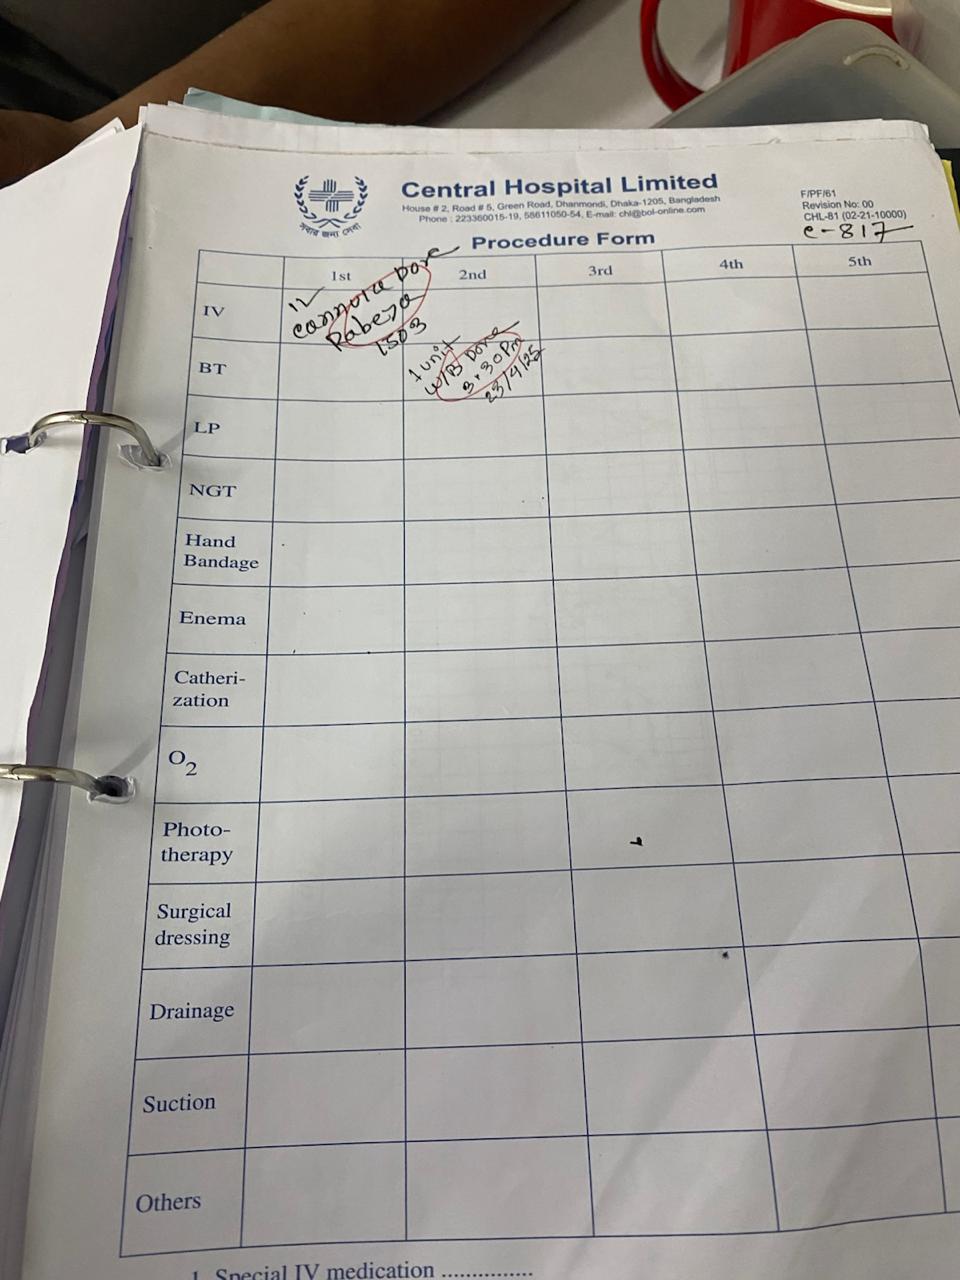 সবার জন্য সেবা
Central Hospital Limited
House # 2, Road # 5, Green Road, Dhanmondi, Dhaka-1205, Bangladesh
Phone : 223360015-19, 58611050-54, E-mail: chl@bol-online.com
F/PF/61
Revision No: 00
CHL-81 (02-21-10000)
c-817
Procedure Form
1st 2nd 3rd 4th 5th
IV
cannula Done
Rabeya
1503
BT
1 unit
W/B Done
3.30 Pm
23/4/25
LP
NGT
Hand
Bandage
Enema
Catheri-
zation
O2
Photo-
therapy
Surgical
dressing
Drainage
Suction
Others
1. Special IV medication ...............